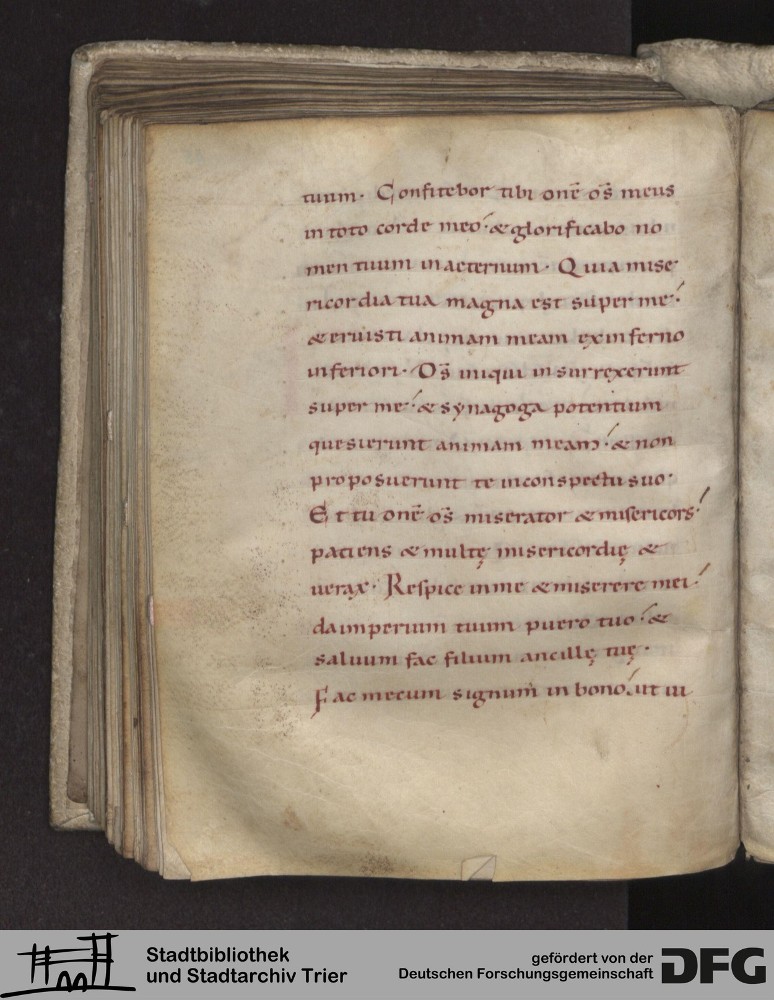 tuum · Confitebor tibi dn̄e ds̄ meus
in toto corde meo · & glorificabo no
men tuum in aeternum · Quia mise
ricordia tua magna est super me ·
& eruisti animam meam ex inferno
inferiori · Ds̄ iniqui insurrexerunt
super me · & synagoga potentium
quesierunt animam meam · & non
proposuerunt te in conspectu suo ·
Et tu dn̄e ds̄ miserator & misericors
patiens & multę misericordię &
uerax · Respice in me & miserere mei ·
da imperium tuum puero tuo · &
saluum fac filium ancillę tuę ·
Fac mecum signum in bono · ut ui
Stadtbibliothek
und Stadtarchiv Trier
gefördert von der
Deutschen Forschungsgemeinschaft
DFG